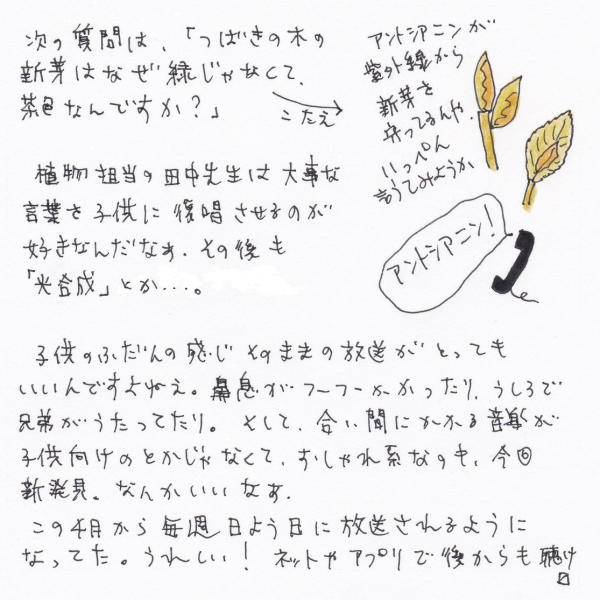 次の質問は、「つばきの木の
新芽はなぜ緑じゃなくて、
茶色なんですか?」
こたえ
アントシアニンが
紫外線から
新芽を
守ってるんや.
いっぺん
言うてみようか
アントシアニン!
植物担当の田中先生は大事な
言葉を子供に復唱させるのが
好きなんだなぁ.その後も
「光合成」とか・・・。
子供のふだんの感じそのままの放送がとっても
いいんですよねえ。鼻息がフーフーかかったり、うしろで
兄弟がうたってたり。そして、合い間にかかる音楽が
子供向けのとかじゃなくて、おしゃれ系なのも、今回
新発見。なんかいいなぁ.
この4月から毎週日よう日に放送されるように
なってた。うれしい!ネットやアプリで後からも聴け